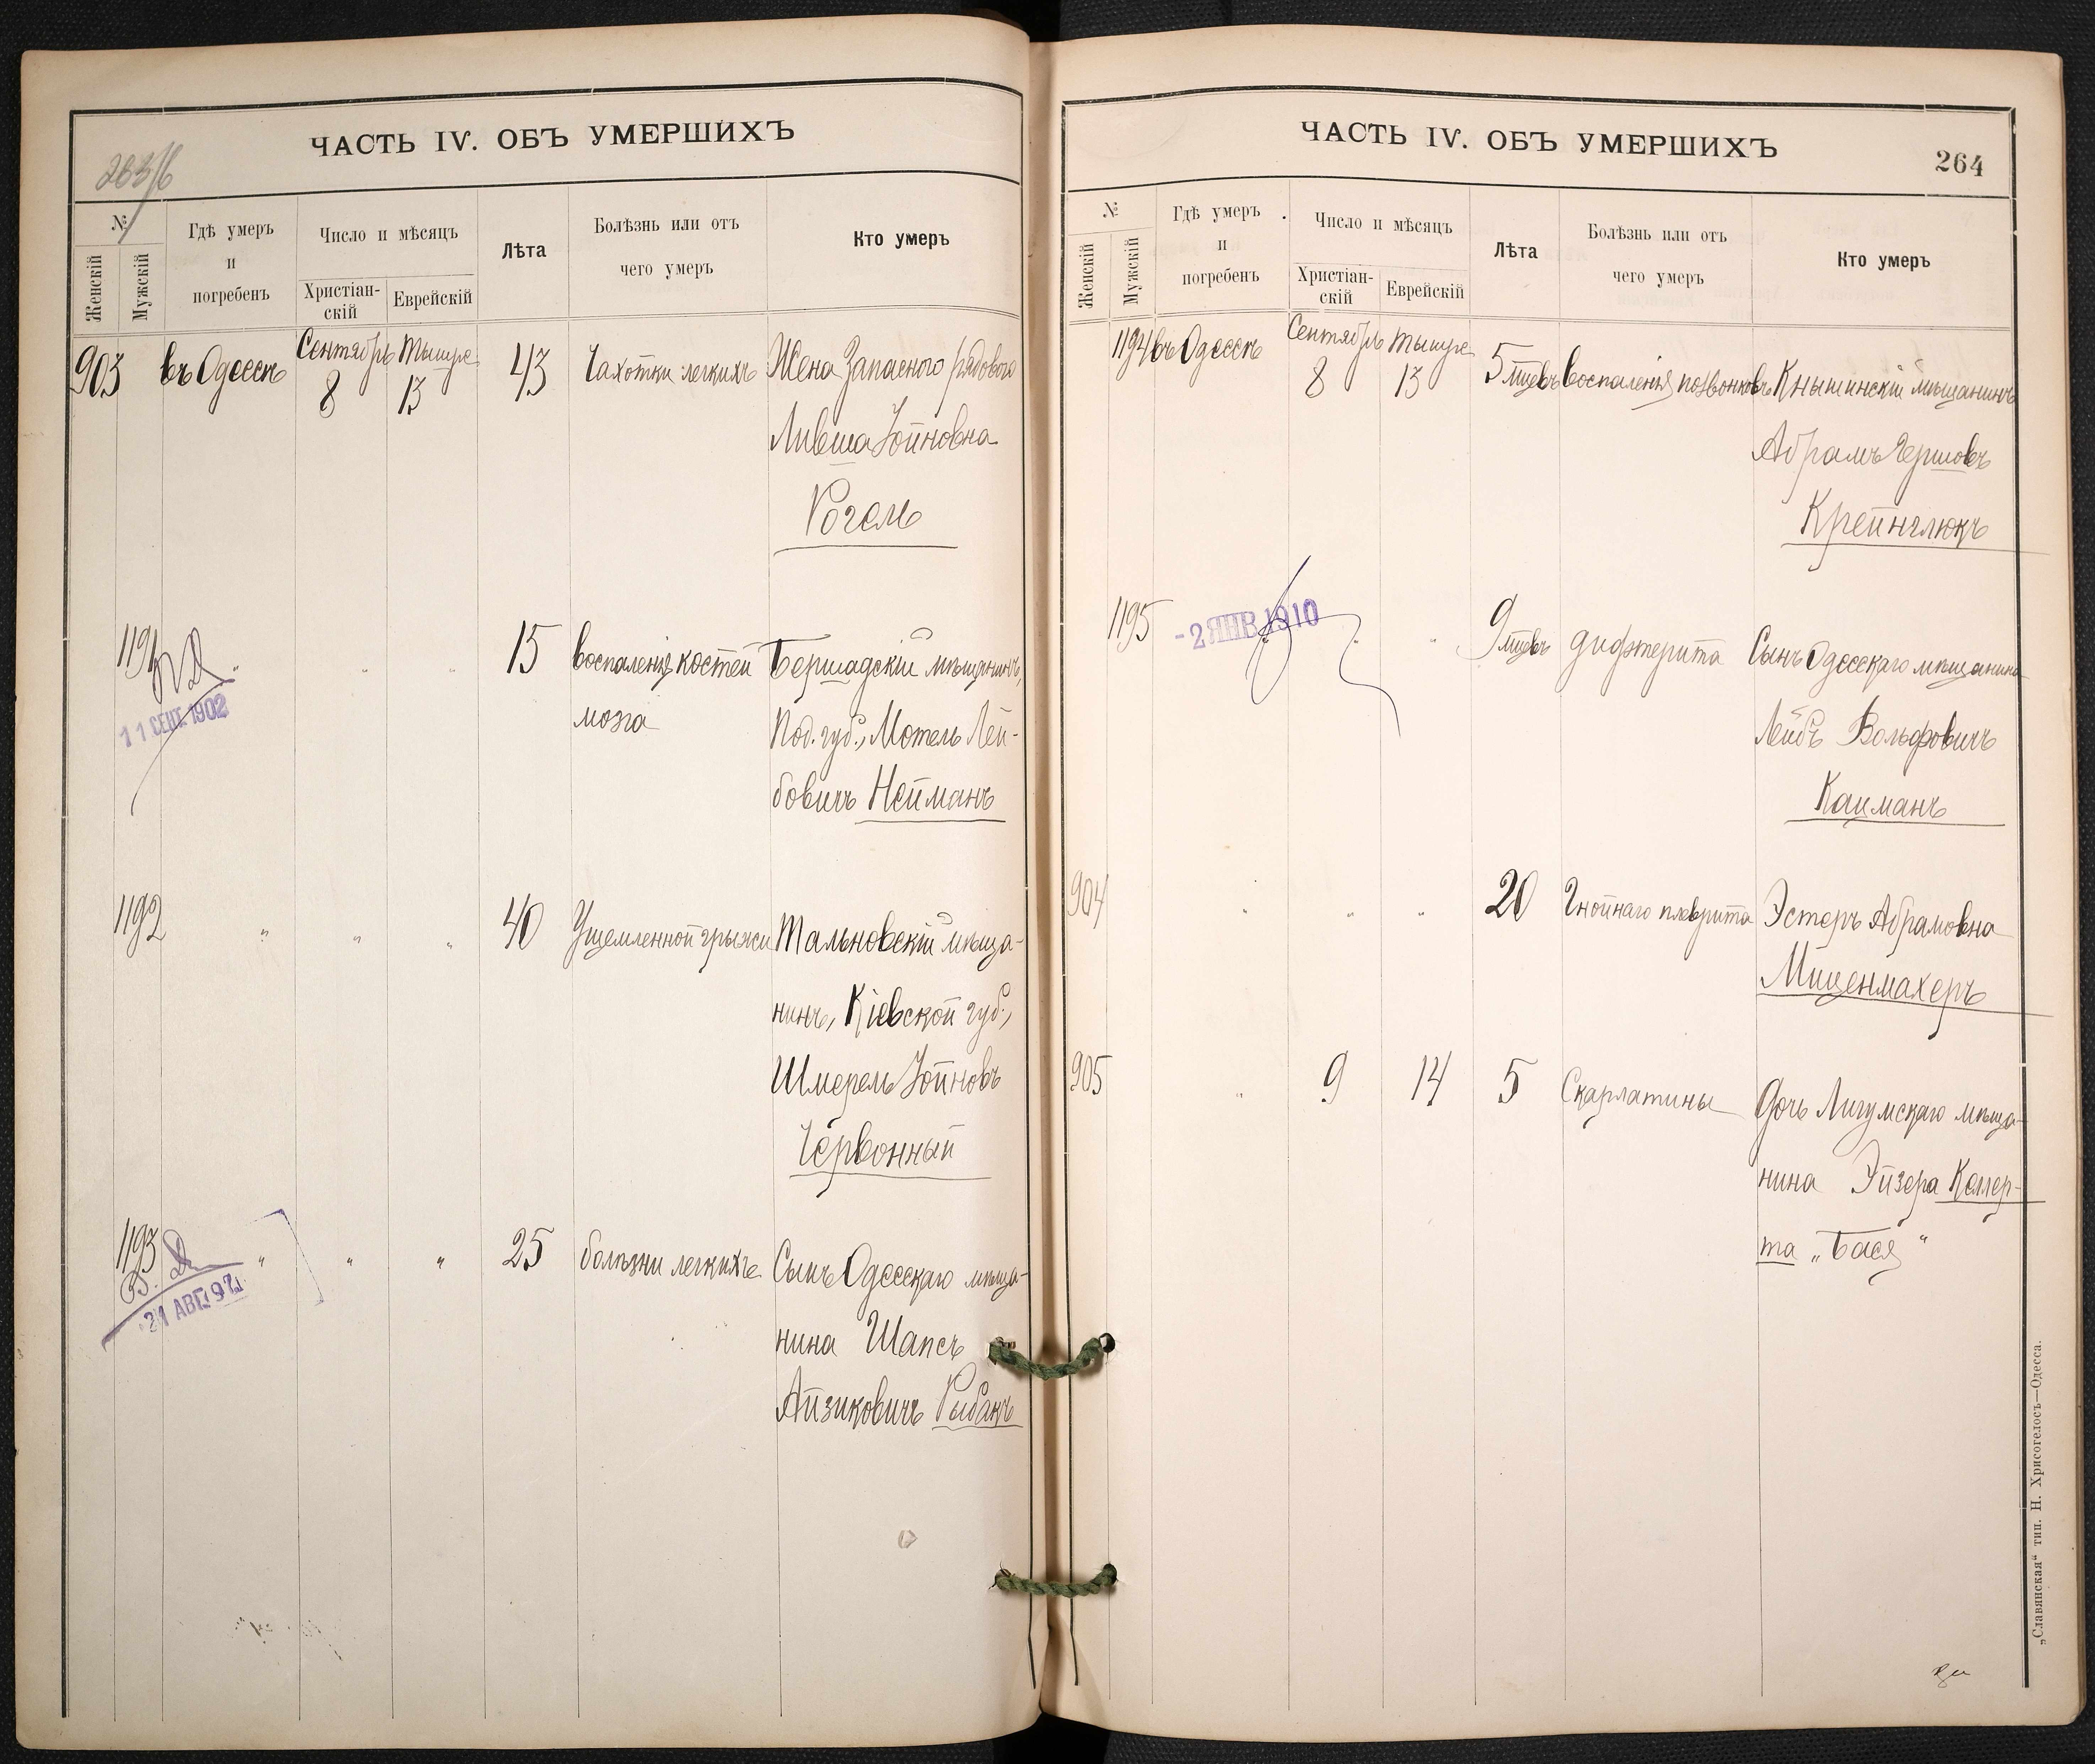 ЧАСТЬ IV. ОБЪ УМЕРШИХЪ
№
Женскій
Мужскій
Гдѣ умеръ
и
погребенъ
Число и мѣсяцъ
Христіан-
скій
Еврейскій
Лѣта
Болѣзнь или отъ
чего умеръ
Кто умеръ
903 въ Одессѣ Сентябрь 8 Тишре 13 43 Чахотки легкихъ Жена Запасного рядового
Ливша Іойновна
Рогель
1191 " " " 15 воспаленія костей Бершадскій мѣщанинъ,
мозга Под. губ., Мотель Лей-
бовичъ Нейманъ
11 СЕНТ. 1902
1192 " " " 40 Ущемленной грыжи Тальновскій мѣща-
нинъ, Кіевской губ.,
Шмерель Іойновъ
Червонный
1193 " " " 25 болѣзни легкихъ Сынъ Одесскаго мѣща-
21 АВГ.
нина Шапсъ
Айзиковичъ Рыбакъ
ЧАСТЬ IV. ОБЪ УМЕРШИХЪ
264
№
Женскій
Мужскій
Гдѣ умеръ
и
погребенъ
Число и мѣсяцъ
Христіан-
скій
Еврейскій
Лѣта
Болѣзнь или отъ
чего умеръ
Кто умеръ
1194 въ Одессѣ Сентябрь 8 Тишре 13 5 мцевъ воспаленія позвонковъ Кнышинскій мѣщанинъ
Абрамъ Гершовъ
Крейнглюкъ
1195 -2 ЯНВ 1910 " 9 мцевъ дифтерита Сынъ Одесскаго мѣщанина
Лейбъ Вольфовичъ
Кацманъ
904 " " " 20 Гнойнаго плеврита Эстеръ Абрамовна
Миценмахеръ
905 " 9 14 5 Скарлатины Дочь Лигумскаго мѣща-
нина Эйзера Келлер-
та „Бася"
„Славянская“ тип. Н. Хрисогелосъ—Одесса.